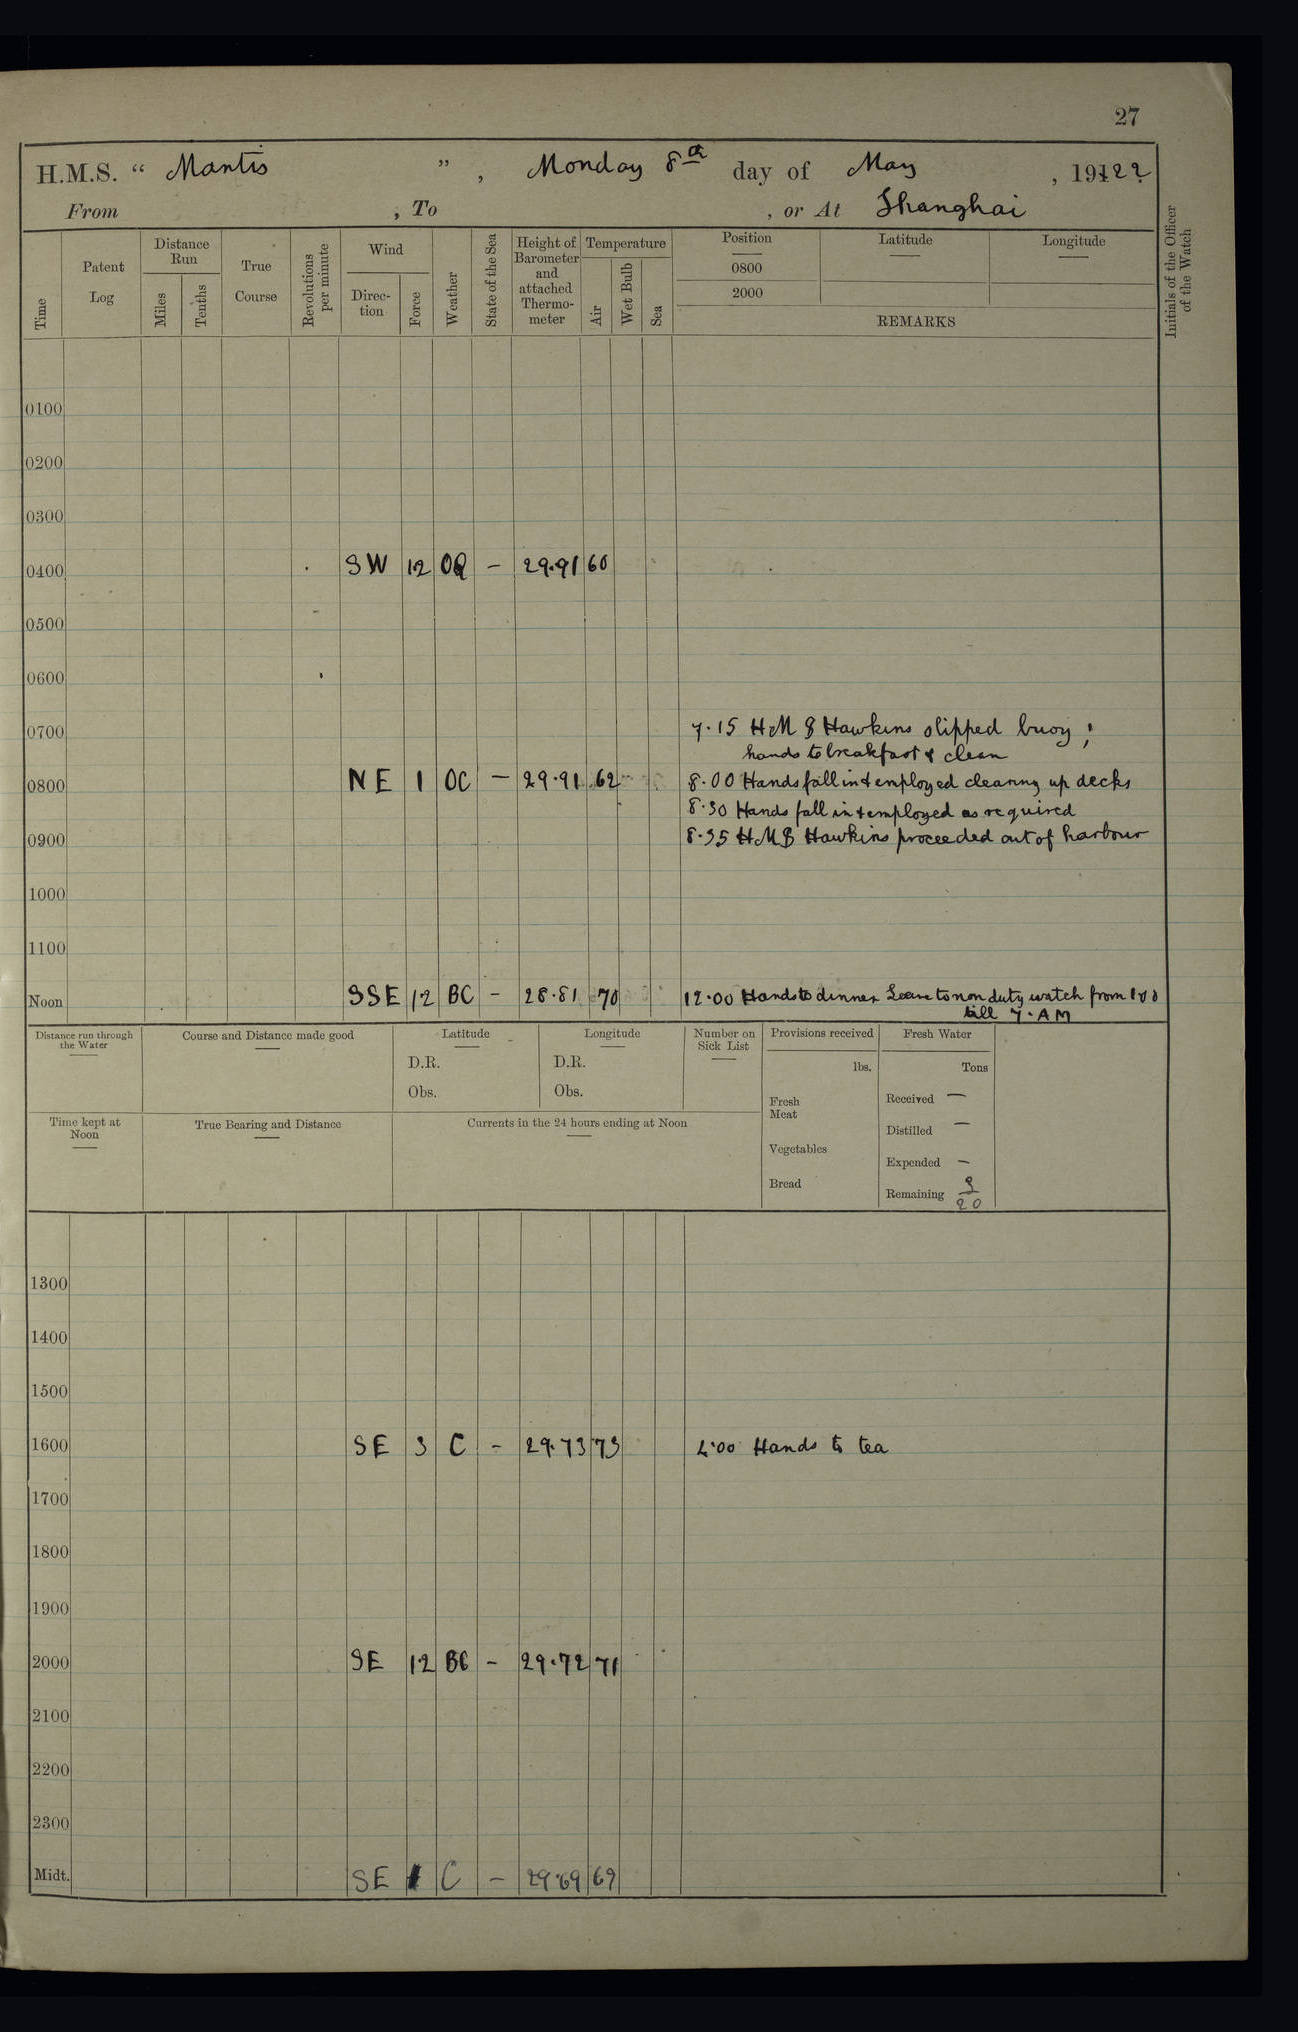 27
H.M.S. “ Mantis ”, Monday 8th day of May, 1922
From , To , or At Shanghai
Time
Patent Log
Distance Run
Miles
Tenths
True Course
Revolutions per minute
Wind
Direction
Force
Weather
State of the Sea
Height of Barometer and attached Thermometer
Temperature
Air
Wet Bulb
Sea
Position
0800
2000
Latitude
Longitude
REMARKS
Initials of the Officer of the Watch
0100
0200
0300
0400 SW 1.2 OQ – 29.91 60
0500
0600
0700 7.15 HMS Hawkins slipped buoy;
hands to breakfast & clean
0800 NE 1 OC – 29.91 62 8.00 Hands fall in & employed clearing up decks
8.30 Hands fall in & employed as required
0900 8.35 HMS Hawkins proceeded out of harbour
1000
1100
Noon SSE 12 BC – 28.81 70 12.00 Hands to dinner Leave to non duty watch from
till 7.AM
Distance run through the Water
Course and Distance made good
Latitude
D.R.
Obs.
Longitude
D.R.
Obs.
Number on Sick List
Provisions received
lbs.
Fresh Meat
Vegetables
Bread
Fresh Water
Tons
Received —
Distilled —
Expended –
Remaining 9/20
Time kept at Noon
True Bearing and Distance
Currents in the 24 hours ending at Noon
1300
1400
1500
1600 SE 3 C – 29.73 73 4.00 Hands to tea
1700
1800
1900
2000 SE 1.2 BC – 29.72 71
2100
2200
2300
Midt. SE 1 C – 29.69 69